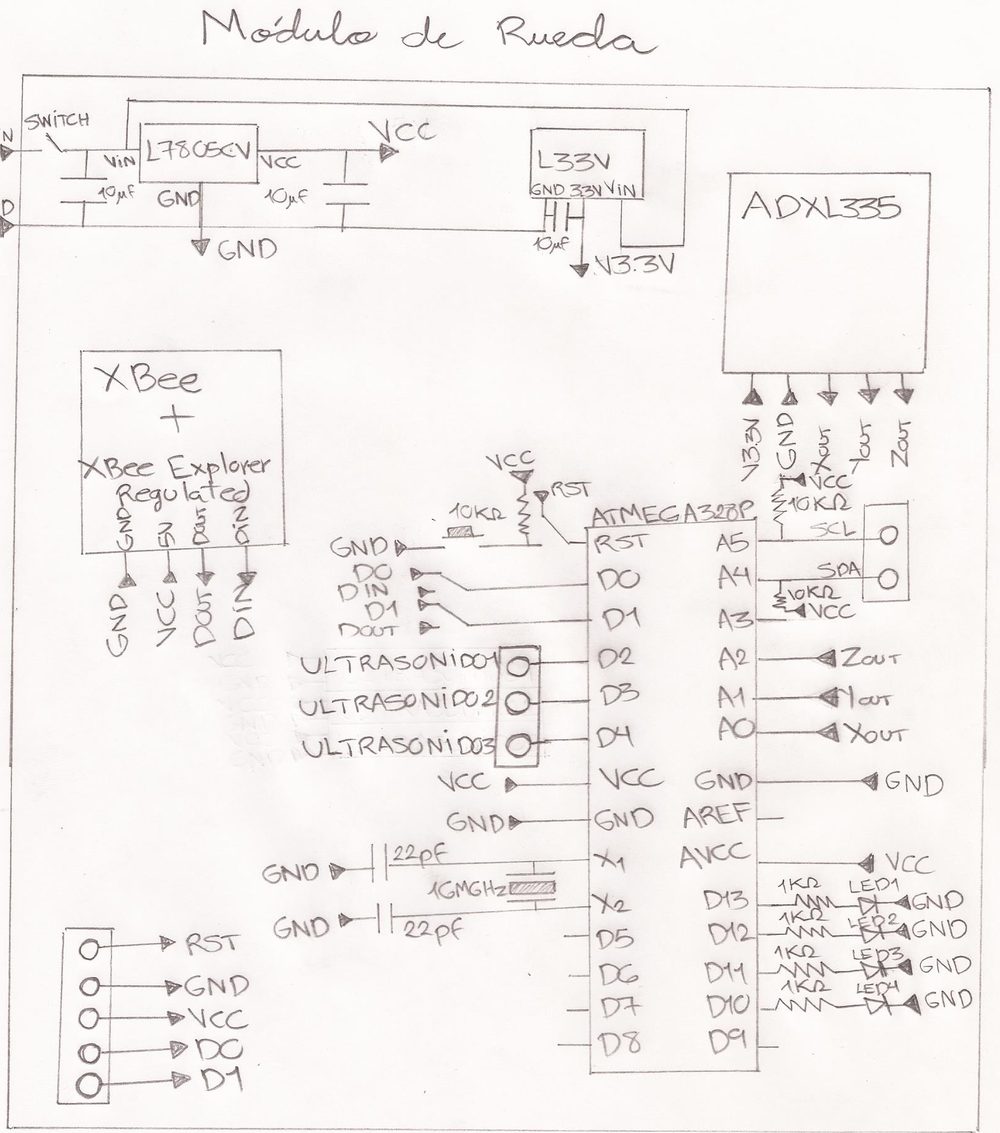 Módulo de Rueda
SWITCH
N
D
ViN
L7805CV
VCC
GND
10µF
10µF
VCC
GND
L33V
GND 33V ViN
10µF
V3.3V
ADXL335
V3.3V
GND
Xout
Yout
Zout
XBee
+
XBee Explorer
Regulated
GND
5V
DOUT
DIN
GND
VCC
DOUT
DIN
VCC
RST
10KΩ
GND
D0
DIN
D1
DOUT
ULTRASONiDO1
ULTRASONiDO2
ULTRASONiDO3
VCC
GND
GND
22pF
16MGHz
GND
22pF
ATMEGA328P
RST
D0
D1
D2
D3
D4
VCC
GND
X1
X2
D5
D6
D7
D8
A5
A4
A3
A2
A1
A0
GND
AREF
AVCC
D13
D12
D11
D10
D9
VCC
10KΩ
SCL
SDA
10KΩ
VCC
Zout
Yout
Xout
GND
VCC
1KΩ LED1 GND
1KΩ LED2 GND
1KΩ LED3 GND
1KΩ LED4 GND
RST
GND
VCC
D0
D1